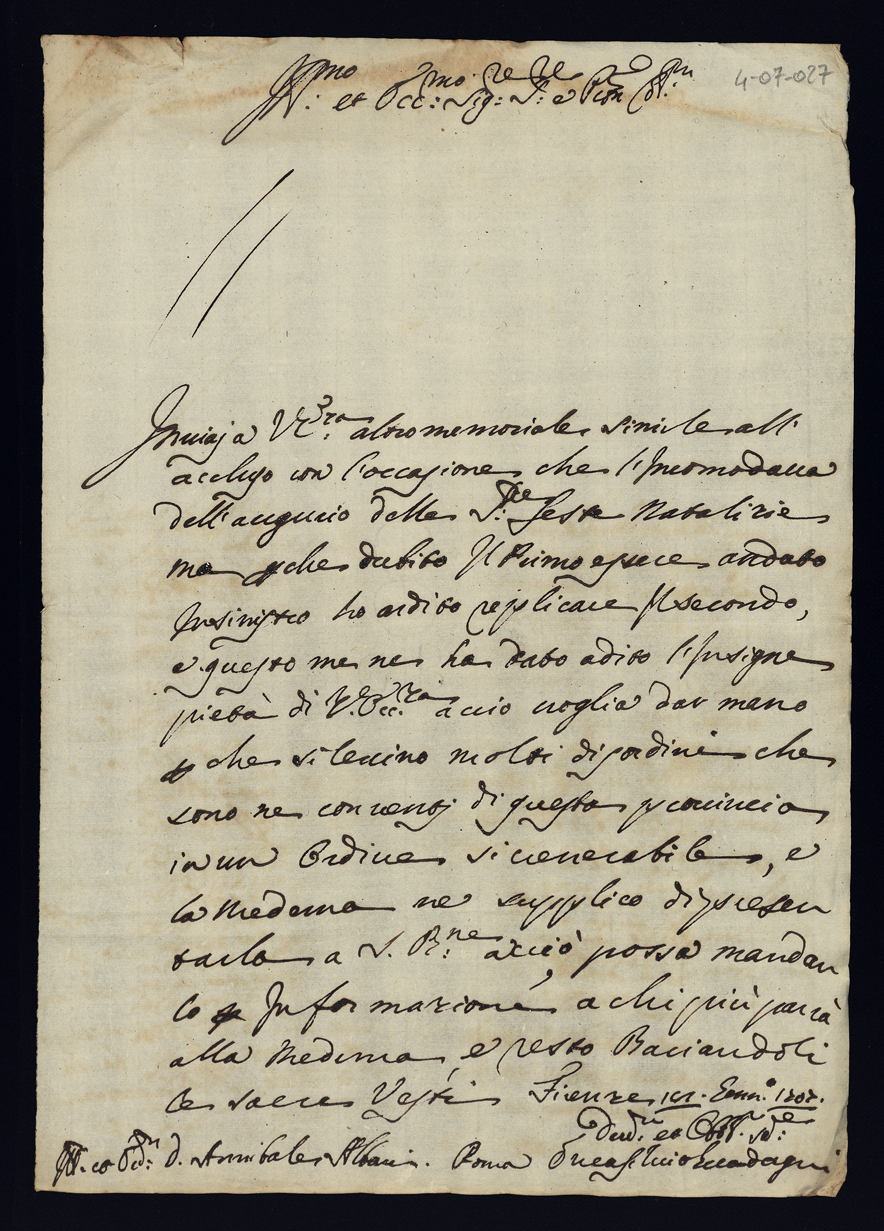 4-07-027
Ill.mo et Ecc.mo Sig.re P.re e Pron Col.mo
Inviai a V.E. altro memoriale simile all'
accluso con l'occasione che l'Incomodava
dell'augurio delle S.te Feste Natalizie
ma p che dubito Il Primo essere andato
In sinistro ho ardito replicare Il secondo,
e questo me ne ha dato adito l'Insigne
pietà di V. Ecc.za acciò voglia dar mano
p che si levino molti disordini che
sono ne conventi di questa provincia
in un Ordine si venerabile, e
la Medema ne supplico di presen
tarlo a S. B.ne acciò possa mandar
lo p Informazione, a chi più parrà
alla Medema, e resto Baciandoli
le sacre Vesti Firenze Genn.o 1707.
et Obb.mo
D. Annibale Albani. Roma Guadagni